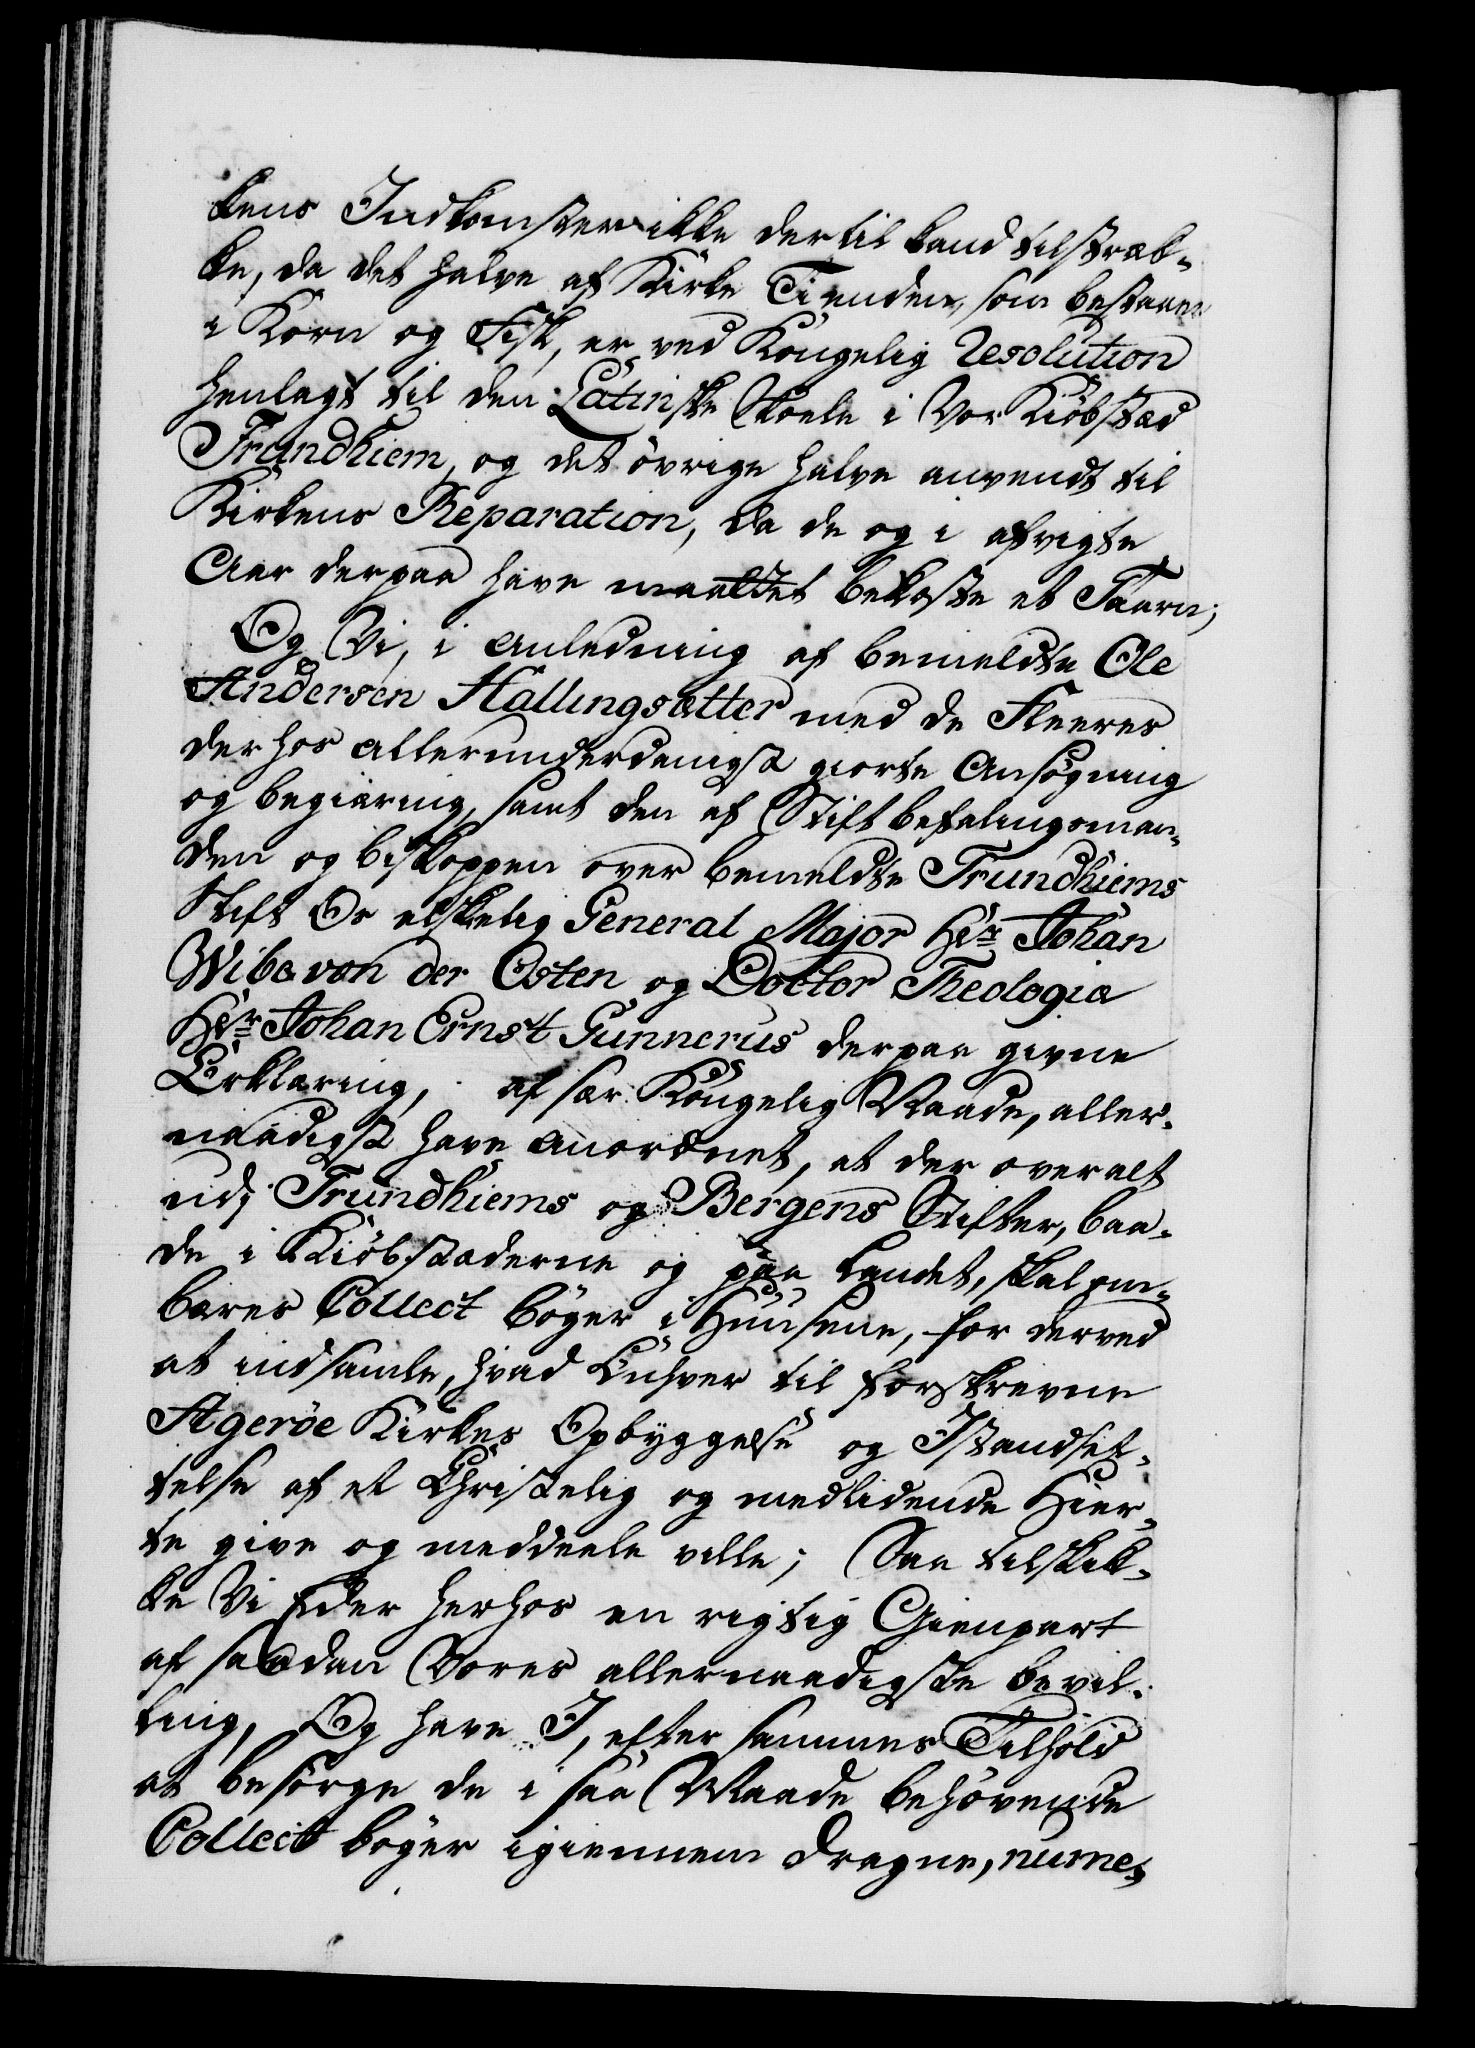 kens Indkomster ikke dertil kand tilstræk-
ke, da det halve af Kirke Tienden, som bestaaer
i Korn og Fisk, er ved Kongelig Resolution
henlagt til den Latinske Skoele i Vor Kiöbstæd
Trundhiem, og det övrige halve anvendt til
Kirkens Reparation, da de og i afvigte
Aar derpaa have maattet bekoste et Taarn;
Og Vi, i Anledning af bemeldte Ole
Andersen Hallingsætter med de Fleeres
derhos allerunderdanigst giorte Ansögning
og begiæring, samt den af Stiftbefalingsman-
den og biskoppen over bemeldte Trundhiems
Stift Os elskelig General Major Hr. Johan
Wibe von der Osten og Doctor Theologiæ
Hr. Johan Ernst Gunnerus derpaa givne
Erklæring, af sær Kongelig Naade, aller-
naadigst have anordnet, at der overalt
udj Trundhiems og Bergens Stifter, baa-
de i Kiöbstæderne og paa Landet, skal om-
bæres Collect böger i Huusene, for derved
at indsamle, hvad Enhver til forskrevne
Ageröe Kirkes Opbyggelse og Istandset-
telse af et Christelig og medlidende Hier-
te give og meddeele ville; Saa tilskik-
ke Vi Eder herhos en rigtig Gienpart
af saadan Vores allernaadigste bevil-
ling, Og have I, efter sammes Tilhold
at besörge de i saa Maade behövende
Collect böger igiennem dragne, nume-